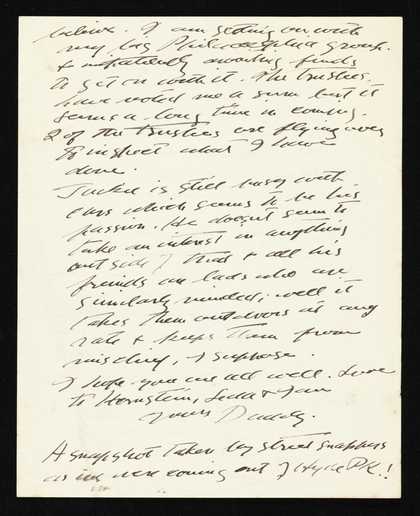 believe. I am getting on with
my big Philadelphia group.
& impatiently awaiting funds
to get on with it. The trustees
have voted me a sum but it
seems a long time in coming.
2 of the trustees are flying over
to inspect what I have
done.
Jackie is still busy with
cars which seems to be his
passion. He doesn't seem to
take an interest in anything
outside of that & all his
friends are lads who are
similarly minded, well it
takes them outdoors at any
rate & keeps them from
mischief, I suppose.
I hope you are all well. Love
to &
Yours Daddy.
A snapshot taken by street snappers
as we were coming out of Hyde Pk.!